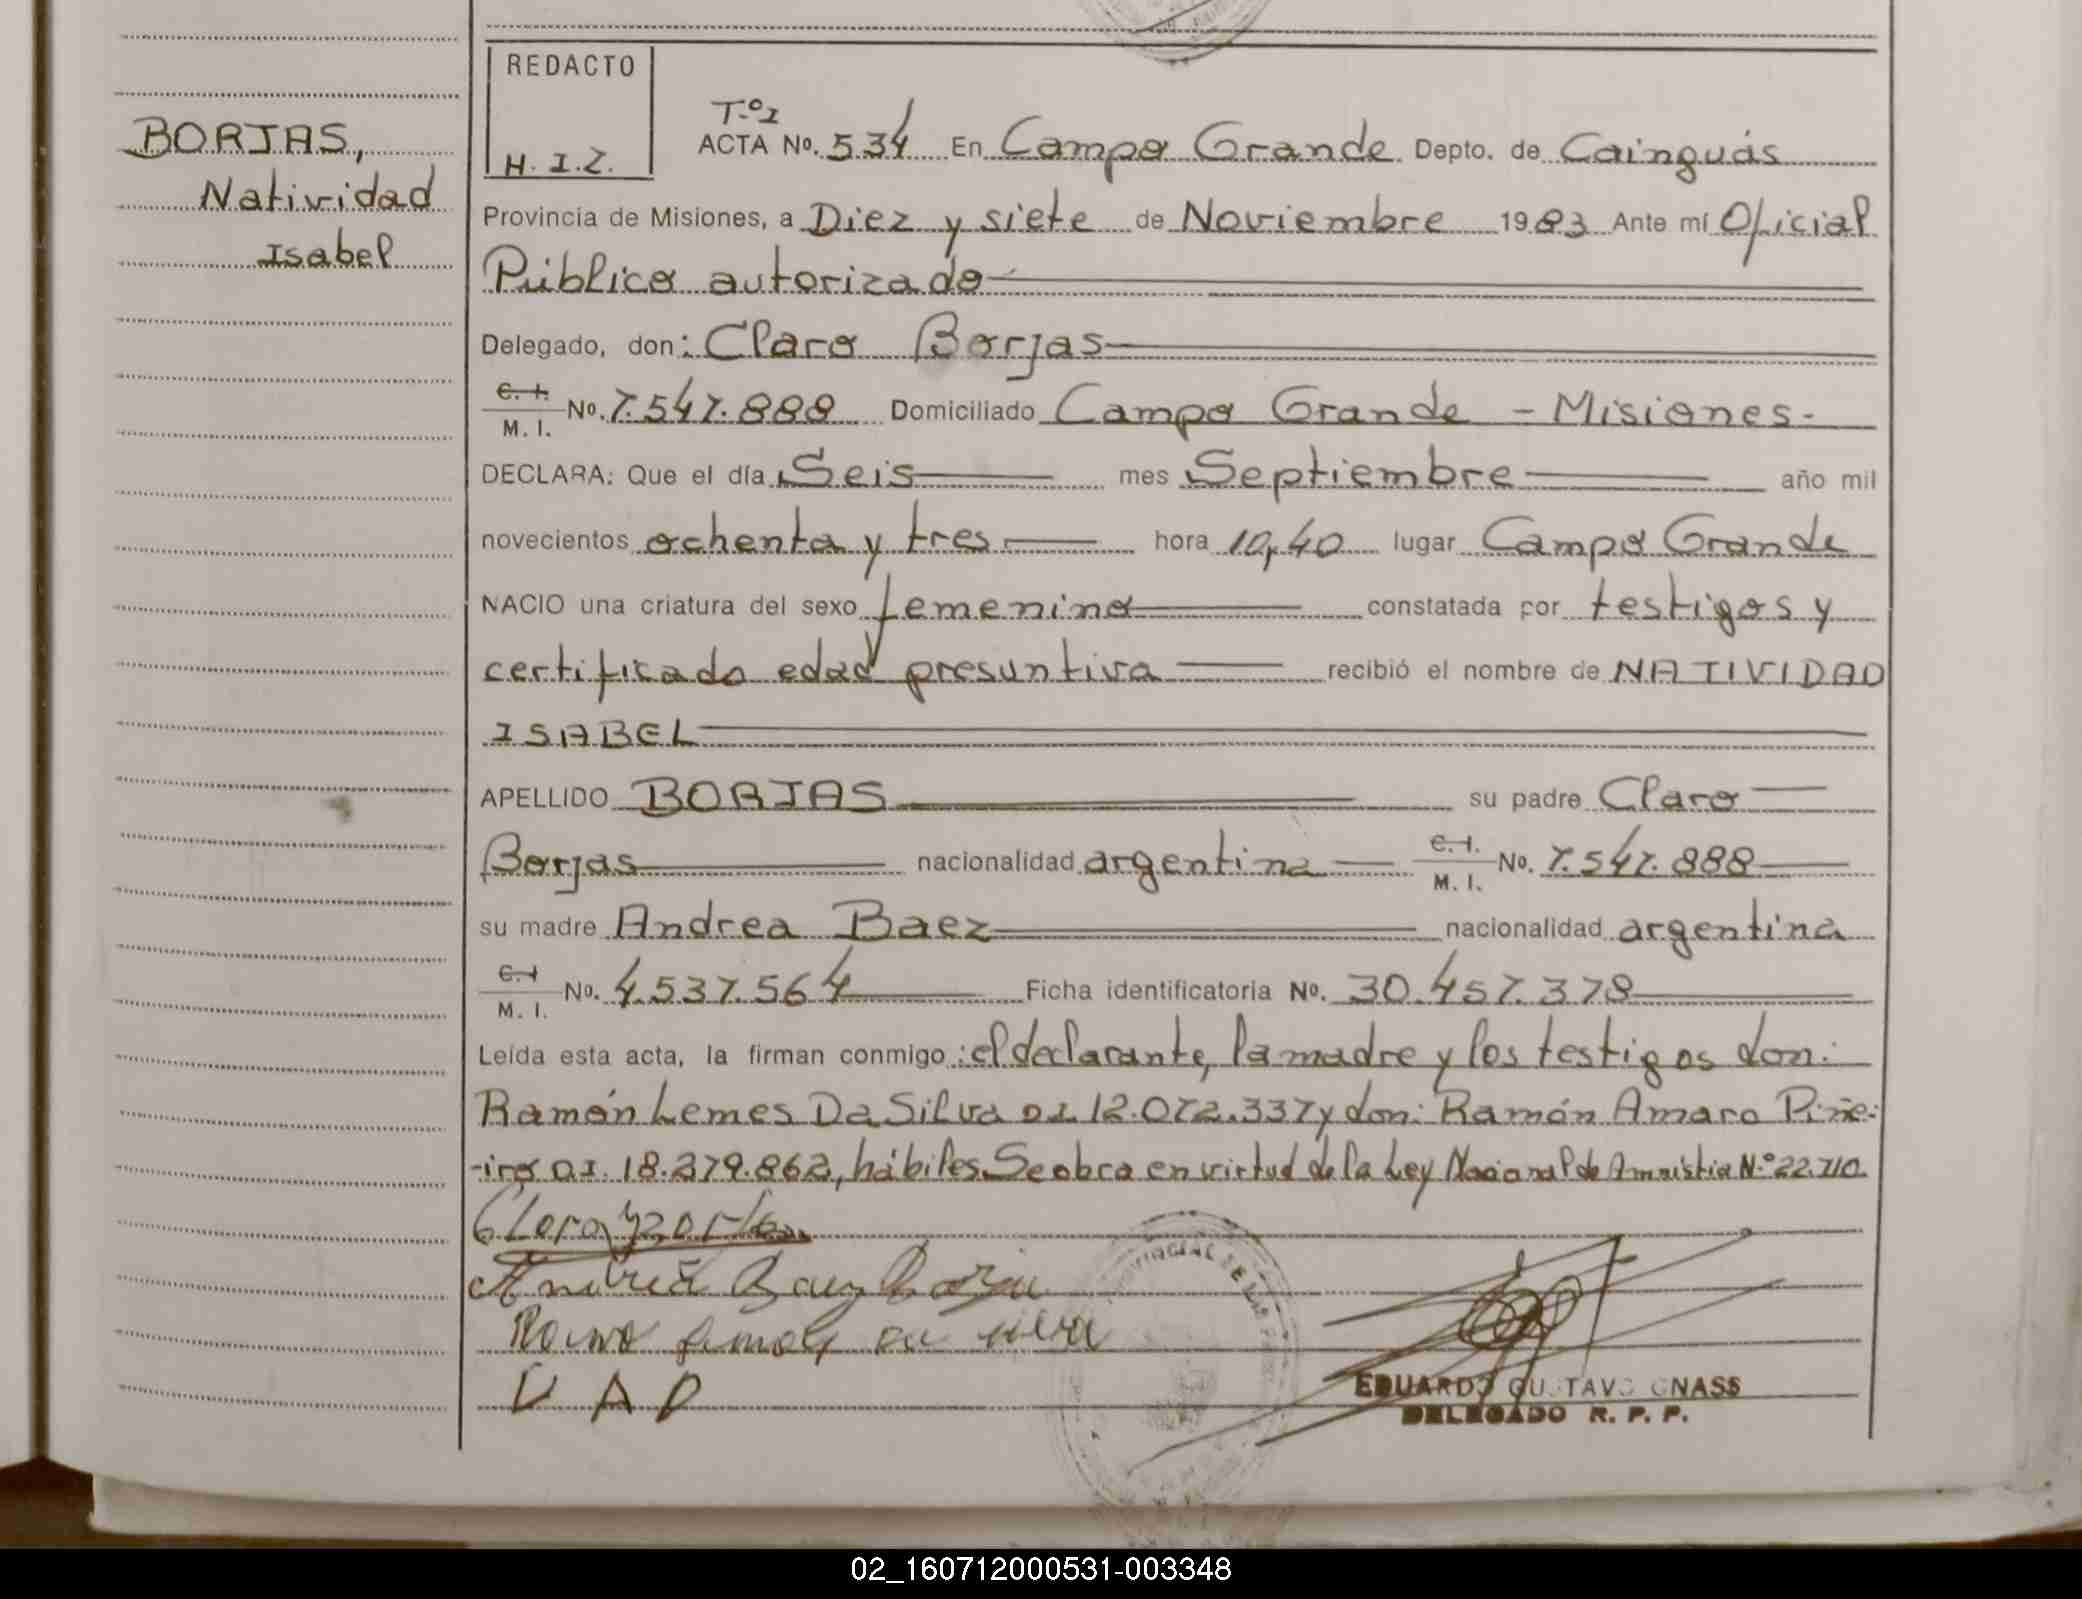 BORJAS,
Natividad
Isabel
REDACTO
H. I. Z.
T.º I
ACTA No. 534 En Campo Grande Depto. de Cainguás
Provincia de Misiones, a Diez y siete de Noviembre 1983 Ante mí Oficial
Público autorizado
Delegado, don: Claro Borjas
C. I. M. I. No. 7.547.888 Domiciliado Campo Grande - Misiones-
DECLARA: Que el día Seis mes Septiembre año mil
novecientos ochenta y tres hora 10,40 lugar Campo Grande
NACIO una criatura del sexo femenino constatada por testigos y
certificado edad presuntiva recibió el nombre de NATIVIDAD
ISABEL
APELLIDO BORJAS su padre Claro
Borjas nacionalidad argentina C. I. M. I. No. 7.547.888
su madre Andrea Baez nacionalidad argentina
C. I M. I. No. 4.537.564 Ficha identificatoria No. 30.457.378
Leída esta acta, la firman conmigo: el declarante, la madre y los testigos don:
Ramón Lemes Da Silva D.I. 12.072.337 y don: Ramón Amaro Piñe-
-iro D.I. 18.279.862, hábiles. Se obra en virtud de la Ley Nacional de Amnistia N.º 22.710
Andrea Baez
EDUARDO GUSTAVO GNASS
DELEGADO R. P. P.
02_160712000531-003348